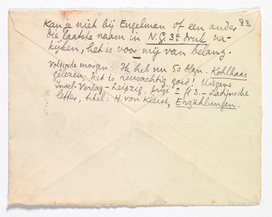 Kan je niet bij Engelman of een ander
die laatste naam in N.G. 3e druk na-
kijken, het is voor mij van belang.
83
Volgende morgen. Ik heb nu 50 blzn. Kohlhaas
gelezen, het is reusachtig goed! Uitgave
Insel-Verlag-Leipzig, prijs ± ƒ3.- Latijnsche
letter, titel: H. von Kleist, Erzählungen.